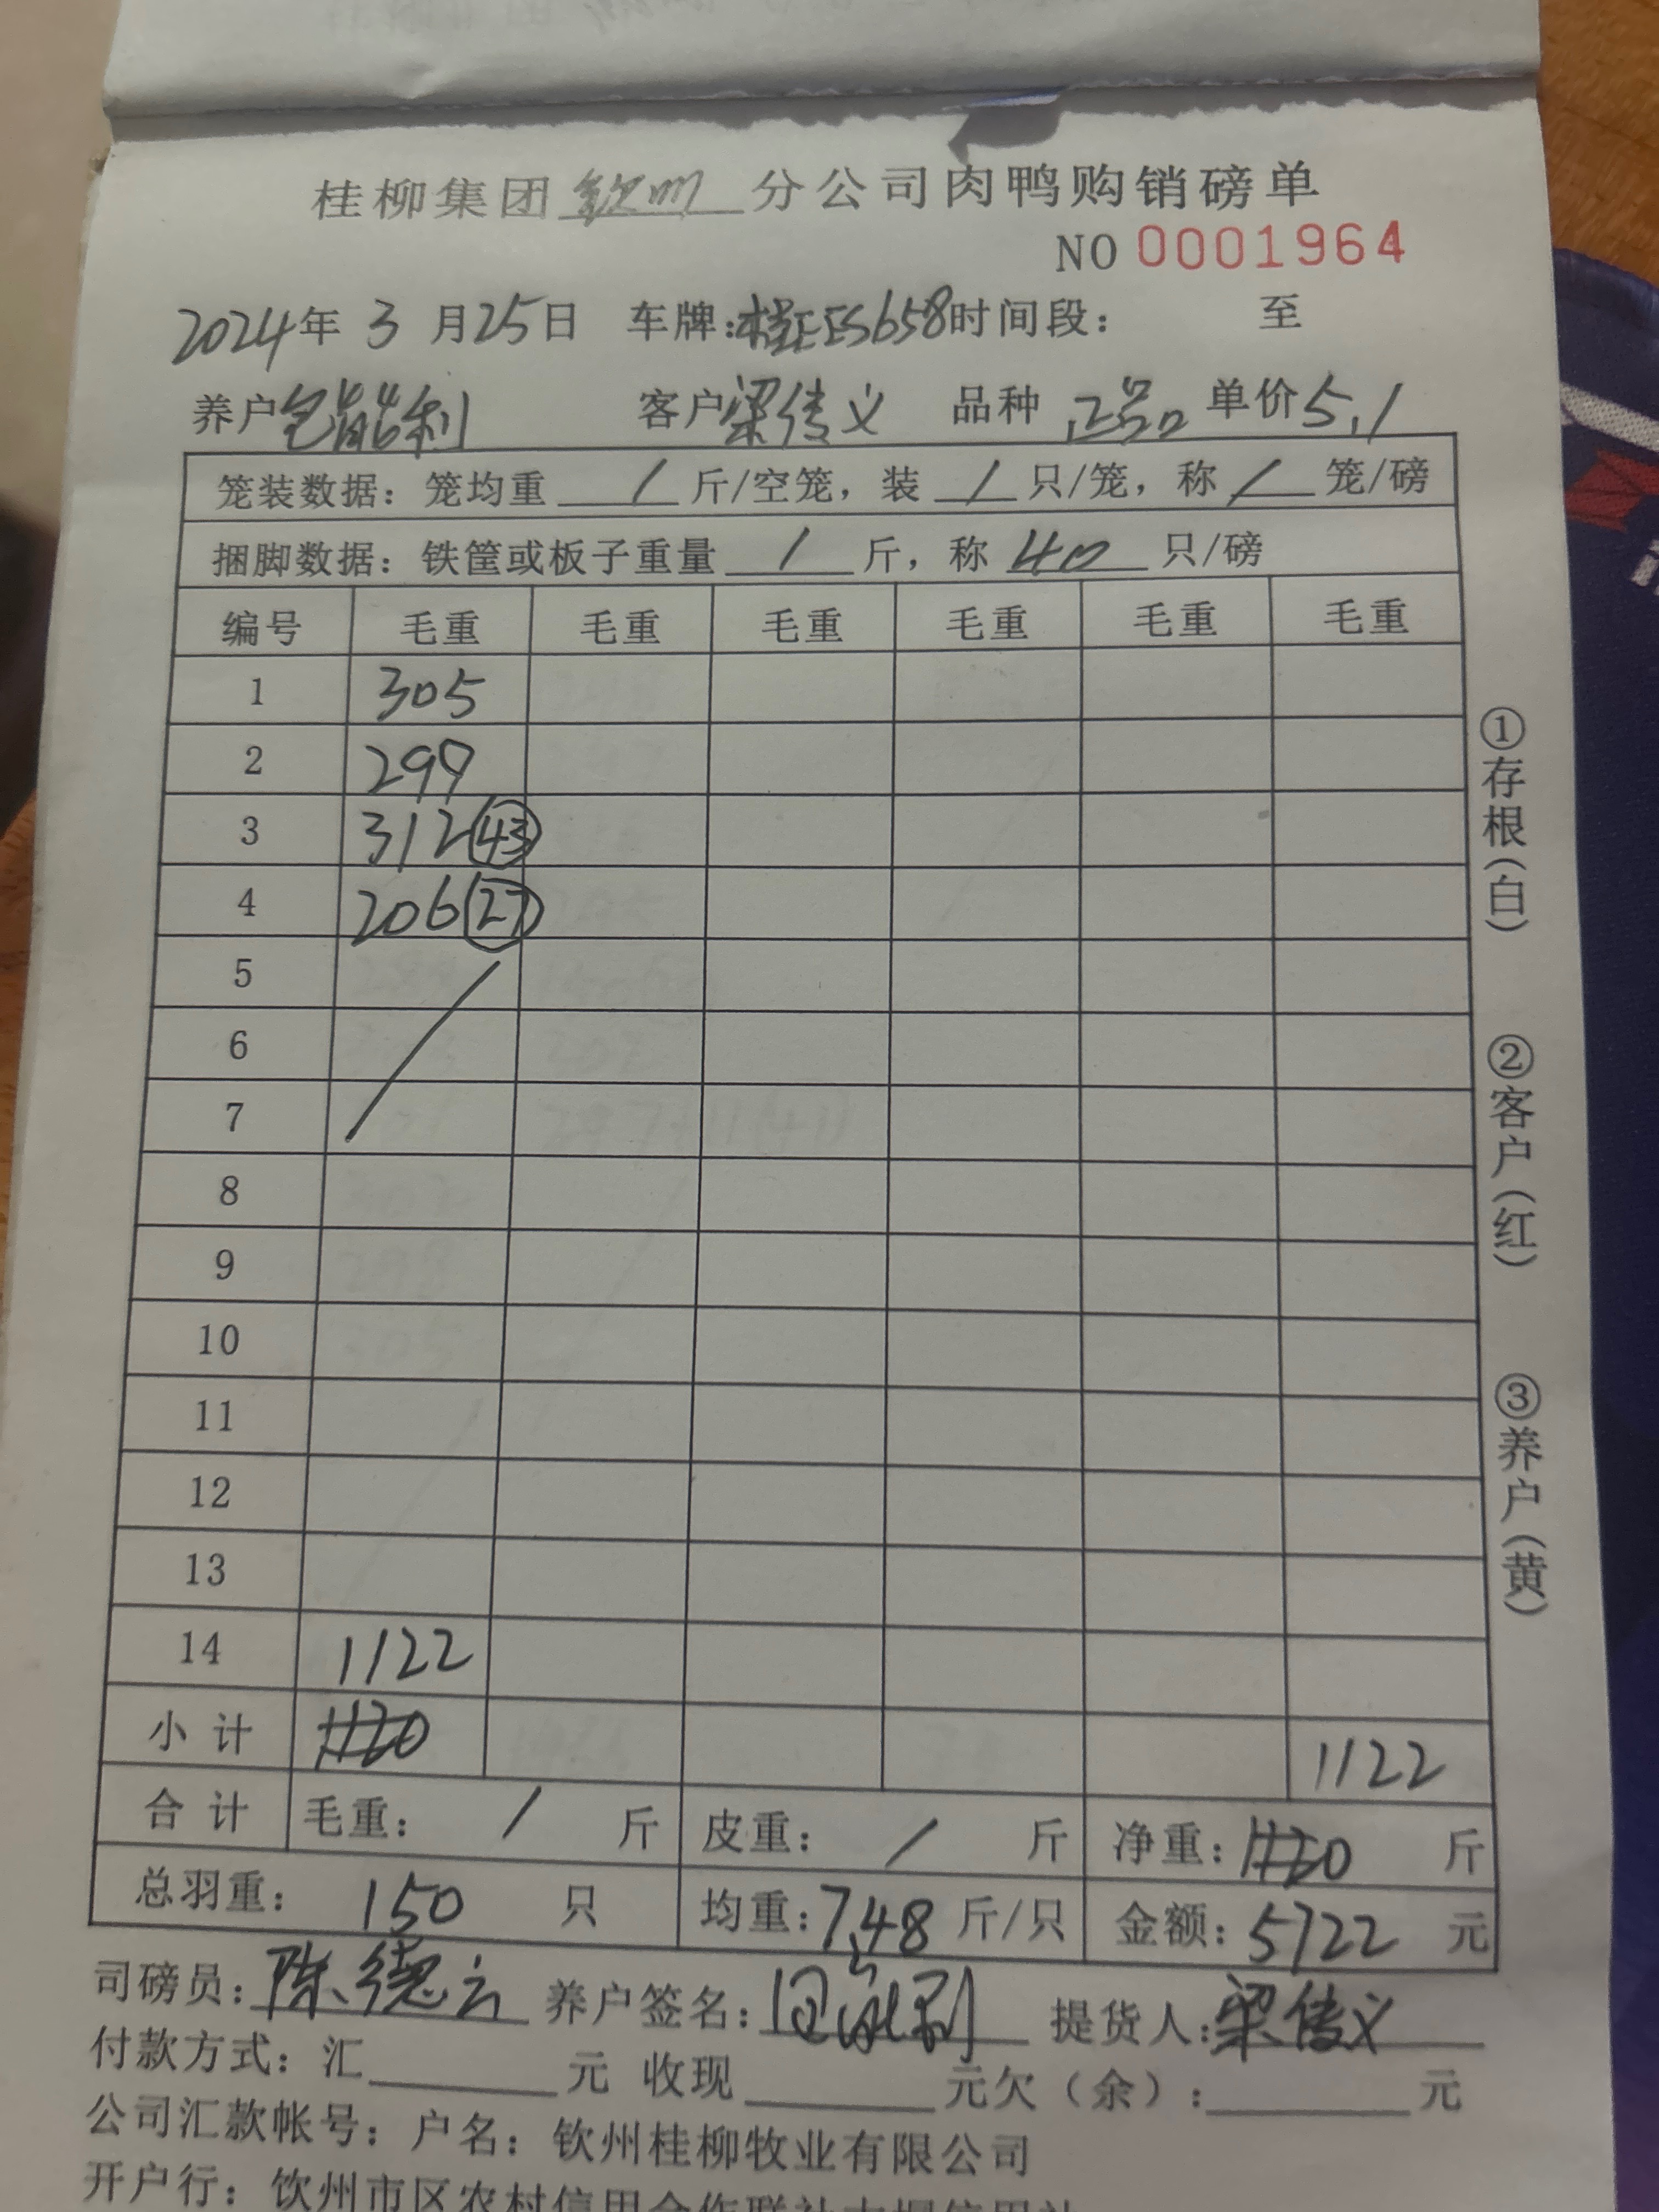 桂柳集团钦州分公司肉鸭购销磅单
NO 0001964
2024年 3 月25日 车牌:桂EES658时间段: 至
养户包能利 客户梁传义 品种 正品 单价5.1
笼装数据: 笼均重 / 斤/空笼, 装 / 只/笼, 称 / 笼/磅
捆脚数据: 铁筐或板子重量 / 斤, 称 40 只/磅
编号 毛重 毛重 毛重 毛重 毛重 毛重
1 305
2 299
3 312 (43)
4 206 (27)
5
6
7
8
9
10
11
12
13
14 1122
小计 1122
合计 毛重: / 斤 皮重: / 斤 净重: 斤
总羽重: 150 只 均重:7.48 斤/只 金额: 5722 元
司磅员: 陈德云 养户签名: 提货人:梁传义
付款方式: 汇 元 收现 元欠(余): 元
公司汇款帐号: 户名: 钦州桂柳牧业有限公司
开户行: 钦州市区农村信用合作联社
①存根(白) ②客户(红) ③养户(黄)